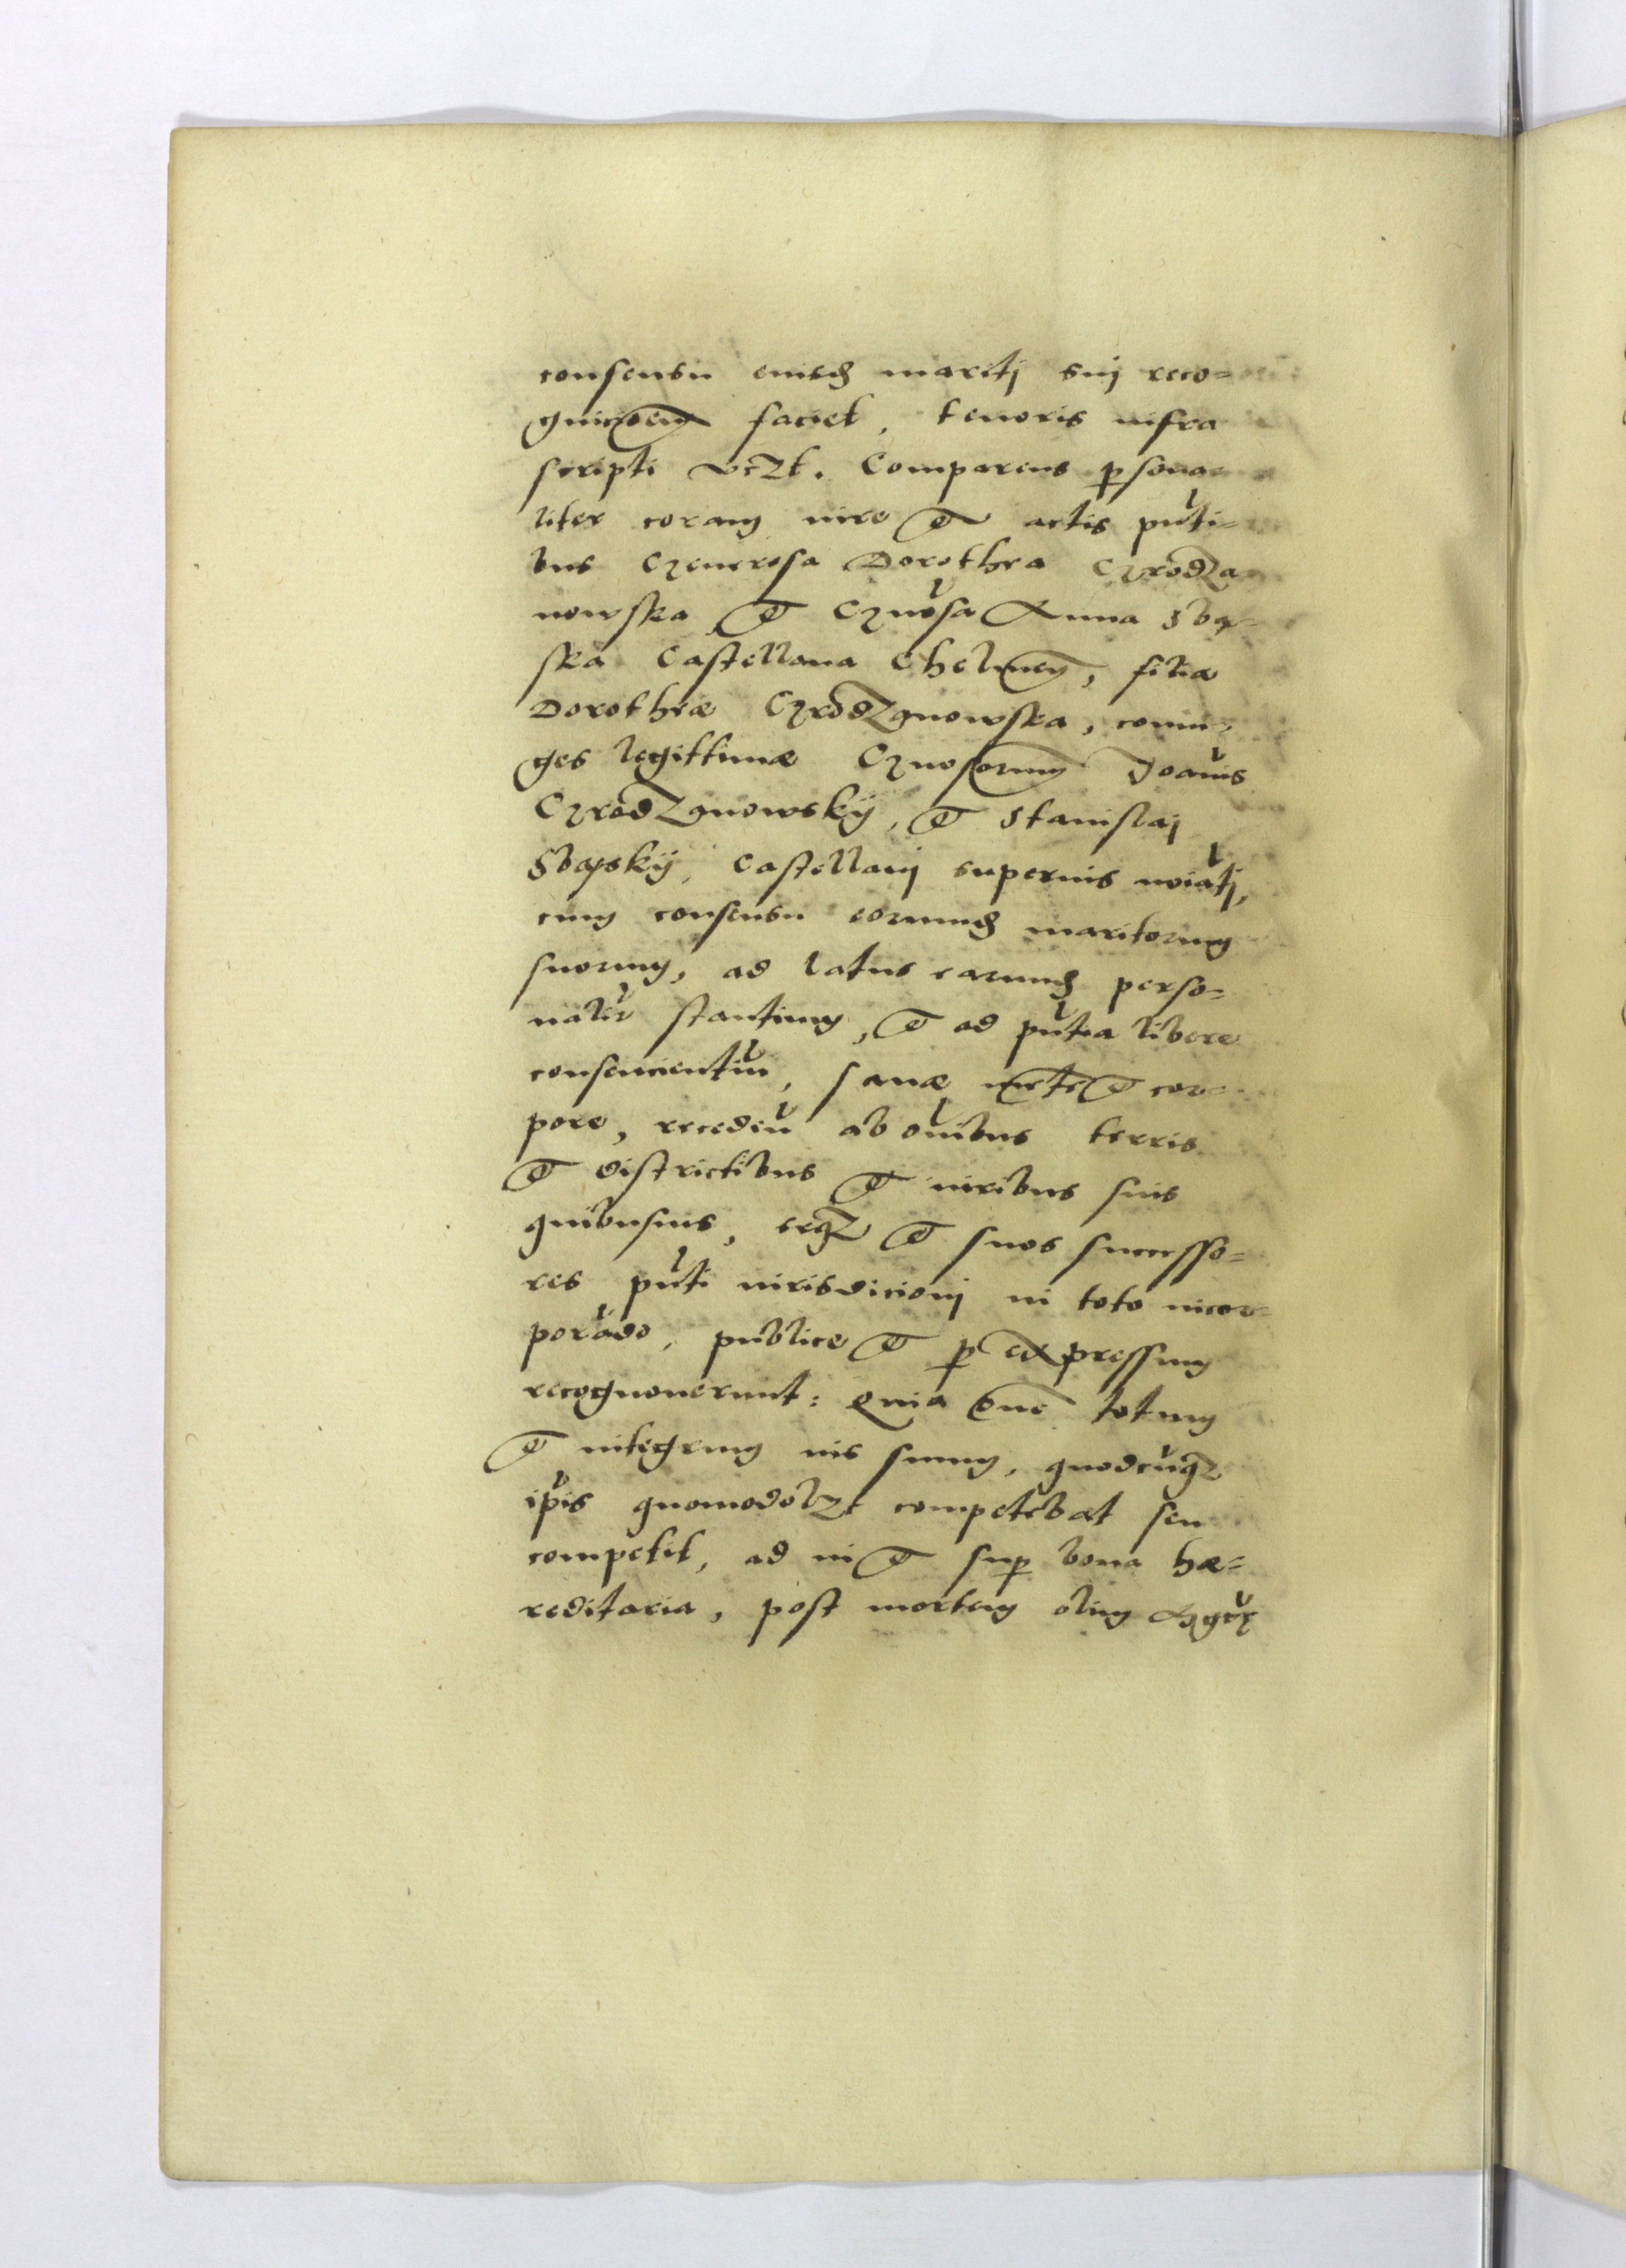 consensu eiusdẽ mariti sui reco-
gnicõem faciet, tenoris infra
scripti vczt. Comparens ꝑsona
liter coram iure et actis pñti-
bus Generosa Dorothea Grodza
nowska et Gnõsa Anna Sbą-
ska Castellana Chelmeñ, filiæ
Dorotheæ Grodzanowska, coniu-
ges legittimæ Gnosorum Joañis
Grodzanowskÿ, et Stanislai
Sbąskÿ, Castellani superius noiãti,
cum consensu eorumdẽ maritorum
suorum, ad latus earumdẽ perso-
nalir stantium, et ad pñtia libere
consencientiũ, sanæ mẽte et cor-
pore, recedeñ ab oĩbus terris
et districtibus et iuribus suis
quibusuis, seqz et suos successo-
res pñti iurisdicioni in toto incor-
porãdo, publice et ꝑ expressum
recognouerunt: Quia õme totum
et integrum ius suum, quodcũqz
ip̃is quomodolzt competebat seu
competit, ad in et suꝑ bona hæ-
reditaria, post mortem olim